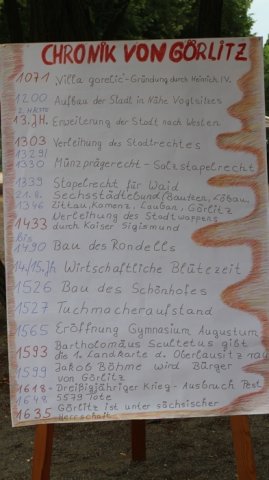 CHRONIK VON GÖRLITZ
1071 "Villa gorelic"-Gründung durch Heinrich IV.
1200 Aufbau der Stadt in Nähe Vogtsites
2. Hälfte
13. JH. Erweiterung der Stadt nach Westen
1303 Verleihung des Stadtrechtes
1329/
1330 Münzprägerecht - Salzstapelrecht
1339 Stapelrecht für Waid
21.8. Sechsstädtebund (Bautzen, Löbau,
1346 Zittau, Kamenz, Lauban, Görlitz
1433 Verleihung des Stadtwappens
durch Kaiser Sigismund
Bis
1490 Bau des Rondells
14./15. Jh Wirtschaftliche Blütezeit
1526 Bau des Schönhofes
1527 Tuchmacheraufstand
1565 Eröffnung Gymnasium Augustum
1593 Bartholomäus Scultetus gibt
die 1. Landkarte d. Oberlausitz raus
1599 Jakob Böhme wird Bürger
von Görlitz
1618- Dreißigjähriger Krieg - Ausbruch Pest
1648 5579 Tote
1635 Görlitz ist unter sächsischer
Herrschaft